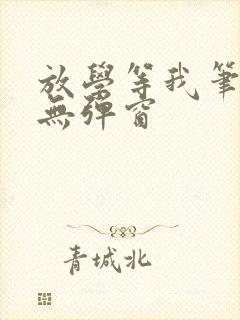 放學等我筆
無彈窗
青城北